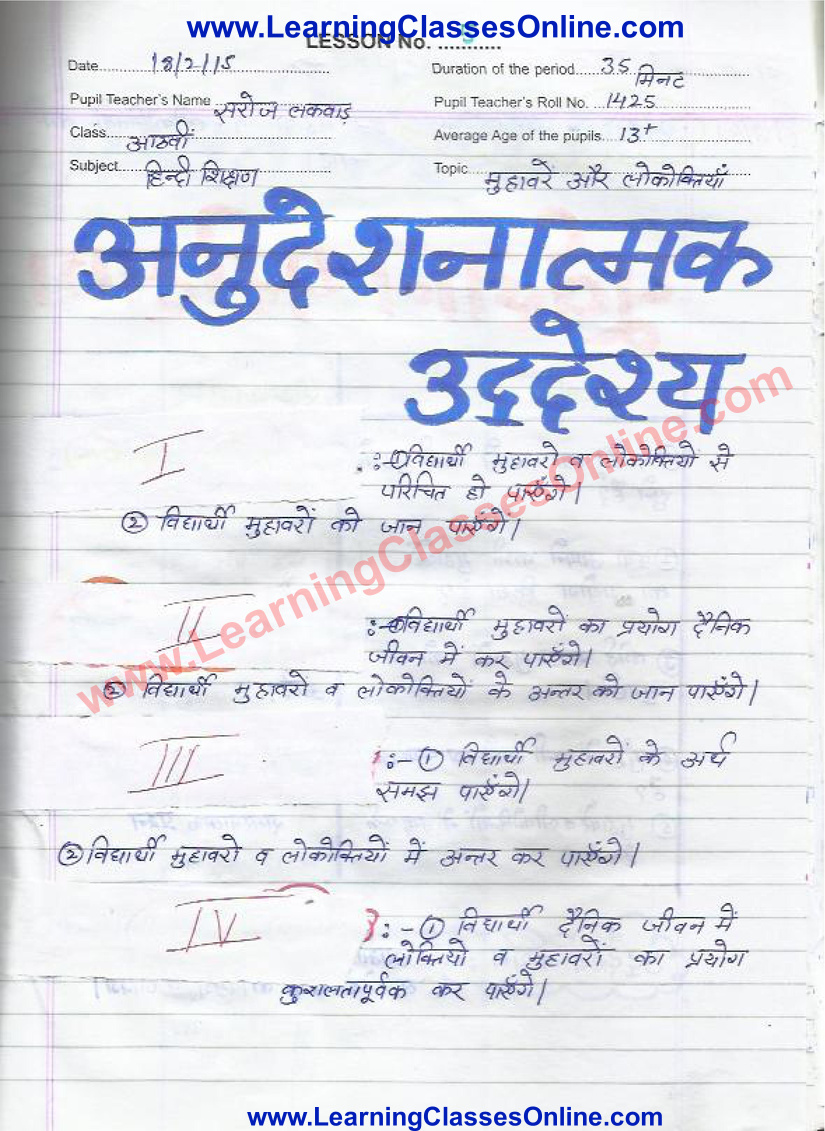 www.LearningClassesOnline.com
LESSON No. ...5...
Date 18/2/15 Duration of the period 35 मिनट
Pupil Teacher's Name सरोज लकवाड़ Pupil Teacher's Roll No. 1425
Class आठवीं Average Age of the pupils 13+
Subject हिन्दी शिक्षण Topic मुहावरें और लोकोक्तियाँ
अनुदेशनात्मक
उद्रदेश्य
I :-① विद्यार्थी मुहावरो व लोकोक्तियों से
परिचित हो पाएँगे।
② विद्यार्थी मुहावरों को जान पाएँगे।
www.LearningClassesOnline.com
II :-① विद्यार्थी मुहावरों का प्रयोग दैनिक
जीवन में कर पाएँगे।
② विद्यार्थी मुहावरों व लोकोक्तियों के अन्तर को जान पाएँगे।
III :- ① विद्यार्थी मुहावरों के अर्थ
समझ पाएँगे।
② विद्यार्थी मुहावरो व लोकोक्तियों में अन्तर कर पाएँगे।
IV :- ① विद्यार्थी दैनिक जीवन में
लोक्तियो व मुहावरों का प्रयोग
कुशलतापूर्वक कर पाएँगे।
www.LearningClassesOnline.com